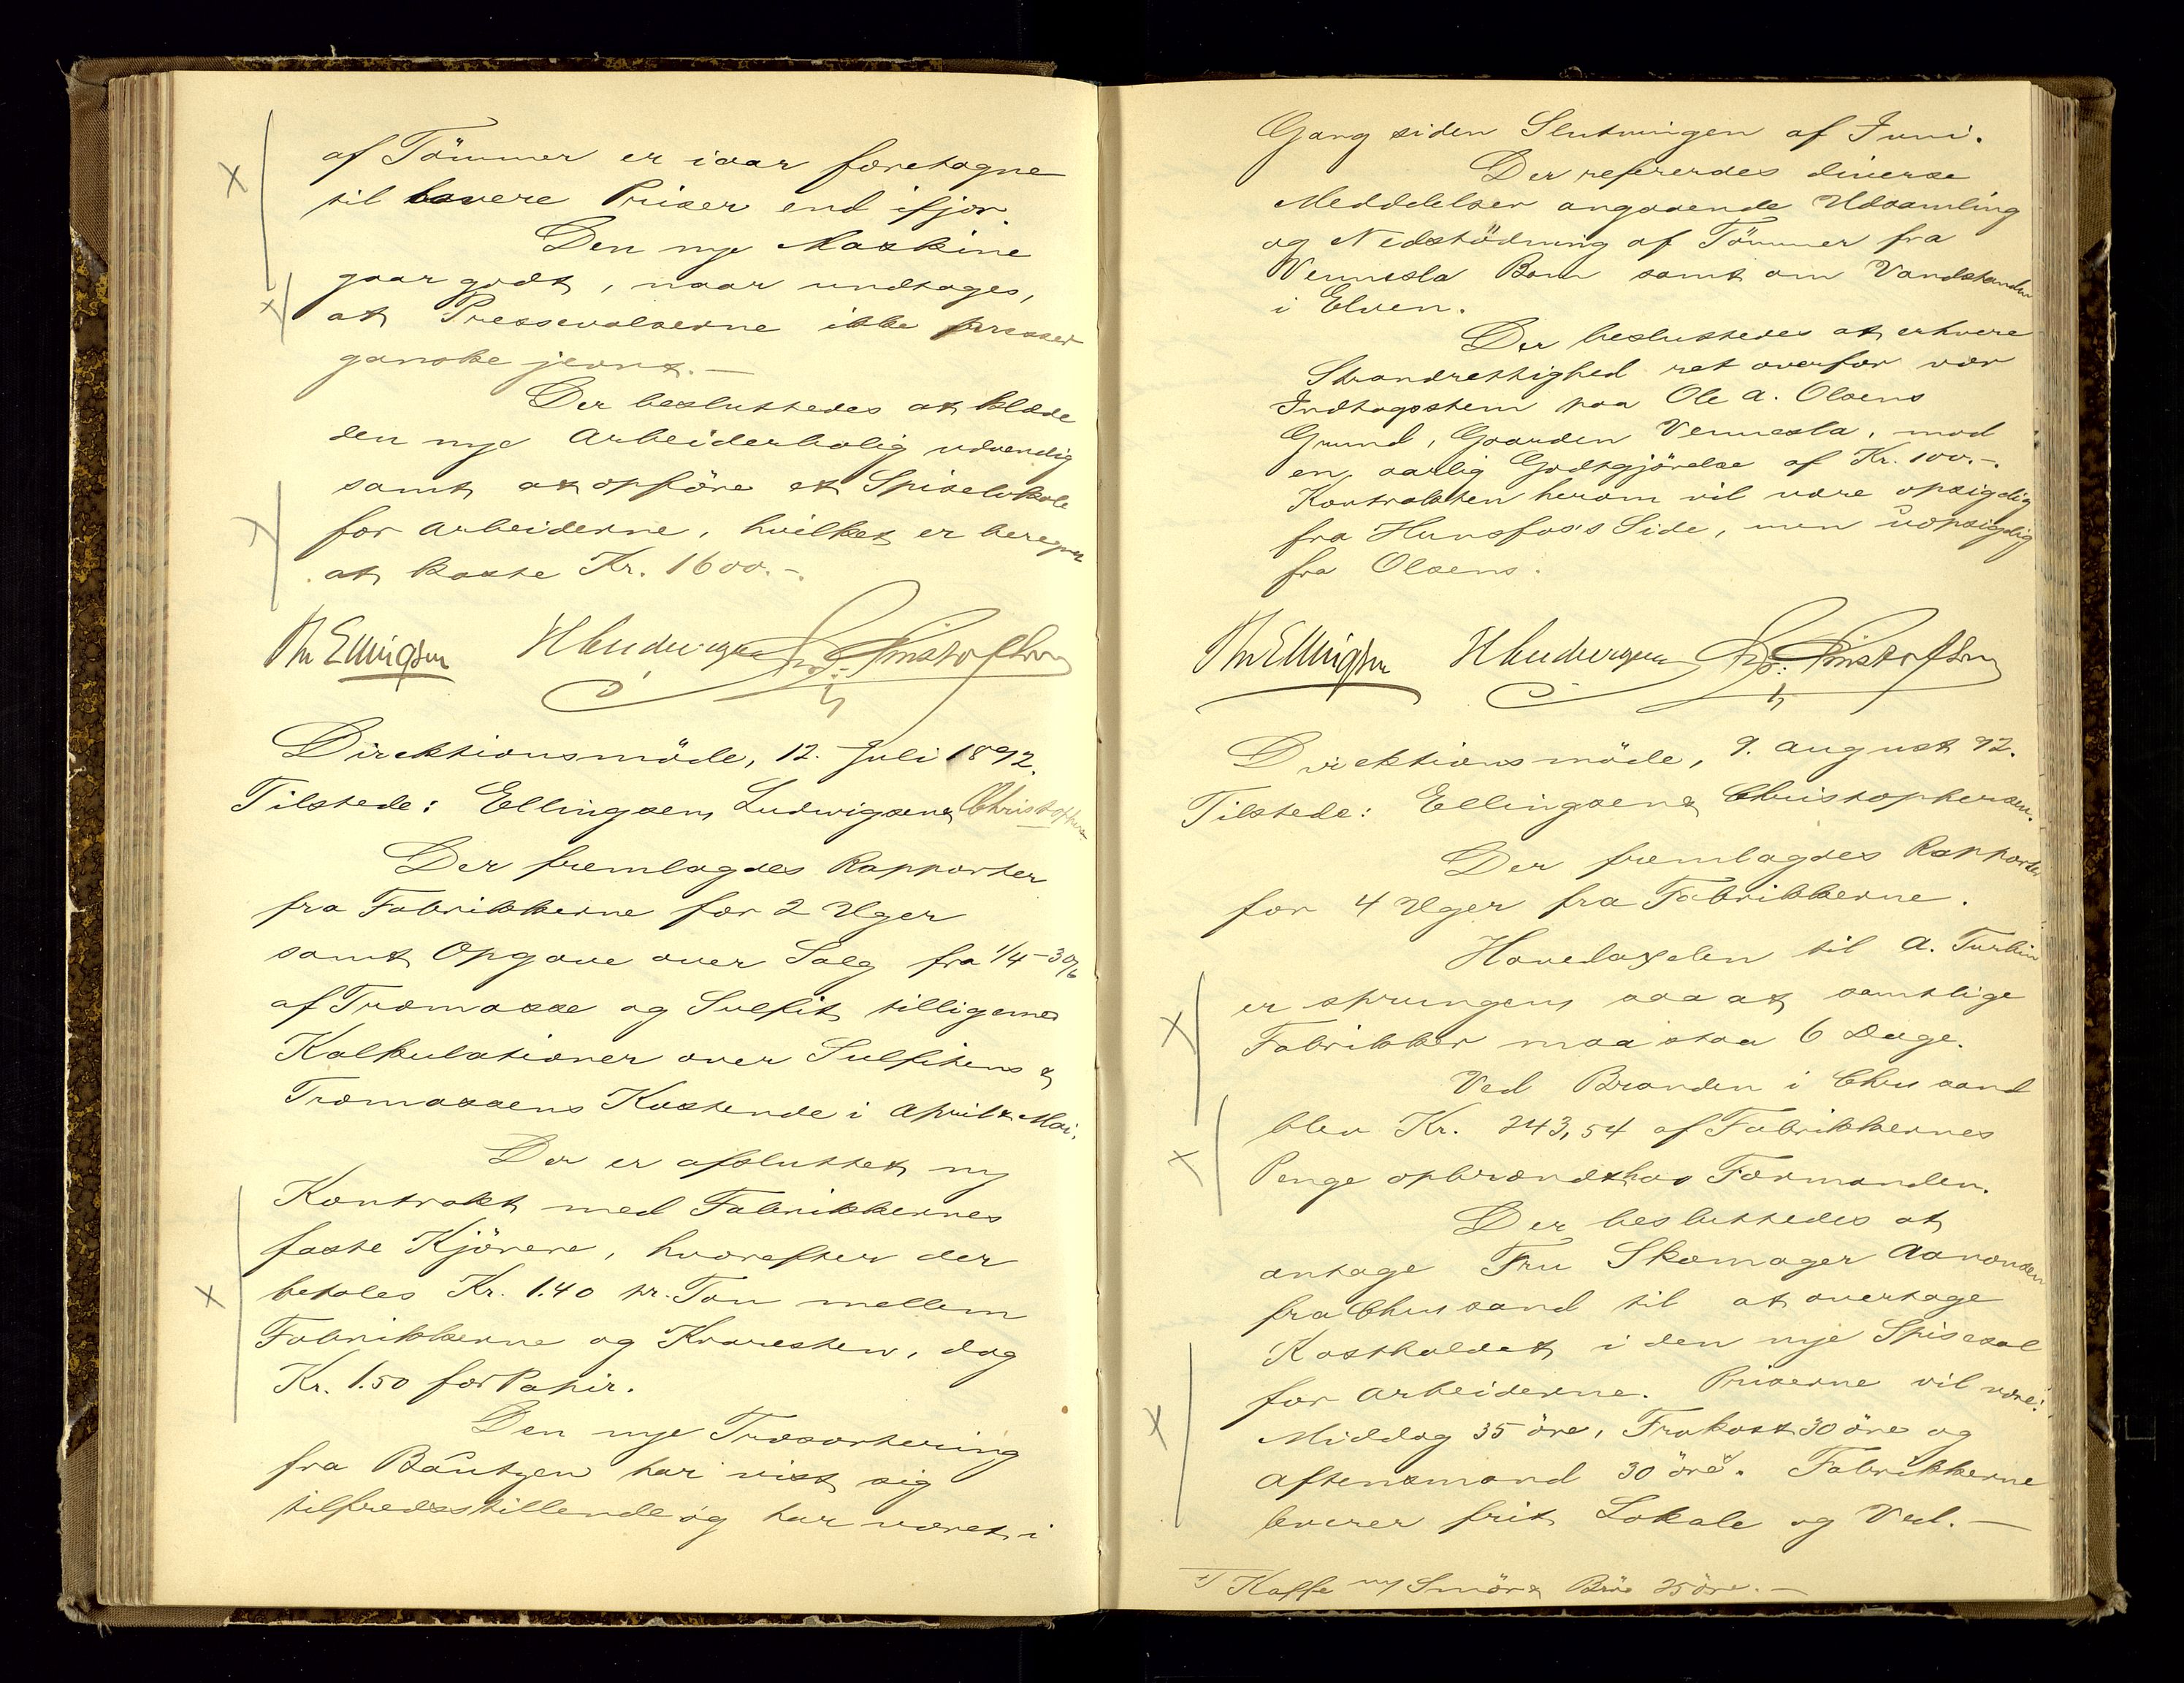 af Tömmer er iaar foretagne
til lavere Priser end ifjor.
Den nye Maskine
gaar godt, naar undtages,
at Pressevalserne ikke presser
ganske jevnt. —
Der besluttedes at klæde
den nye Arbeiderbolig udvendig
samt at opföre et Spiselokale
for Arbeiderne, hvilket er beregnet
at koste Kr. 1600.-
Th Ellingsen HLudwigsen Christophersen
Direktionsmöde, 12. Juli 1892.
Tilstede: Ellingsen, Ludwigsen & Christophersen
Der fremlagdes Rapporter
fra Fabrikkerne for 2 Uger
samt Opgave over Salg fra 1/4 - 30/6
af Træmasse og Sulfit tilligemed
Kalkulationer over Sulfitens &
Træmassens Kostende i April & Mai.
Der er afsluttet ny
Kontrakt med Fabrikkernes
faste Kjörere, hvorefter der
betales Kr. 1.40 pr. Ton mellem
Fabrikkerne og Kvaresten, dog
Kr. 1.50 for Papir.
Den nye Træsortering
fra Bäntzen har vist sig
tilfredsstillende og har været i
Gang siden Slutningen af Juni.
Der refererdes diverse
Meddelelser angaaende Udsamling
og Nedstödning af Tömmer fra
Vennesla Bom samt om Vandstanden
i Elven.
Der besluttedes at erhverve
Strandrettighed ret overfor vor
Indtagsstem paa Ole A. Olsens
Grund, Gaarden Vennesla, mod
en aarlig Godtgjörelse af Kr. 100.-.
Kontrakten herom vil være opsigelig
fra Hunsfos's Side, men uopsigelig
fra Olsens.
Th Ellingsen HLudwigsen Christophersen
Direktionsmöde, 9. August 92.
Tilstede: Ellingsen & Christophersen.
Der fremlagdes Rapporter
for 4 Uger fra Fabrikkerne.
Hovedaxelen til A. Turbin
er sprungen saa at samtlige
Fabrikker maa staa 6 Dage.
Ved Branden i Chrsand
blev Kr. 243,54 af Fabrikkernes
Penge opbrændt hos Formanden.
Der besluttedes at
antage Fru Skomager Aanonsen
fra Chrsand til at overtage
Kostholdet i den nye Spisesal
for Arbeiderne. Priserne vil være:
Middag 35 öre, Frokost 30 öre og
Aftensmand 30 öre. Fabrikkerne
leverer frit Lokale og Ved. —
Kaffe m/ Smör & Bröd 25 öre. —